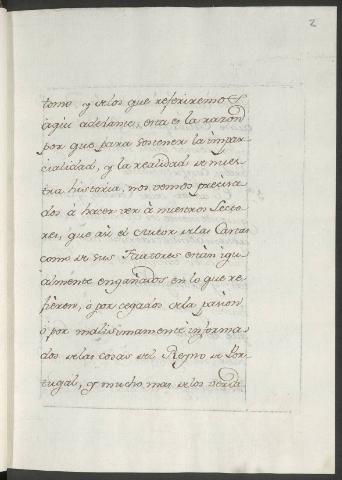 2
tomo, y de los que referiremos
aqui adelante, esta es la razon
por que para sostener la impar-
cialidad, y la realidad de nues-
tra historia, nos vemos precisa-
dos á hacer ver á nuestros Lecto-
res, que asi el Autor de las Cartas
como de sus Fautores están igu-
almente engañados en lo que re-
fieren, ó por cegados de la pasion
ó por malisimamente informa-
dos de las cosas del Reyno de Por-
tugal, y mucho mas de los verda-